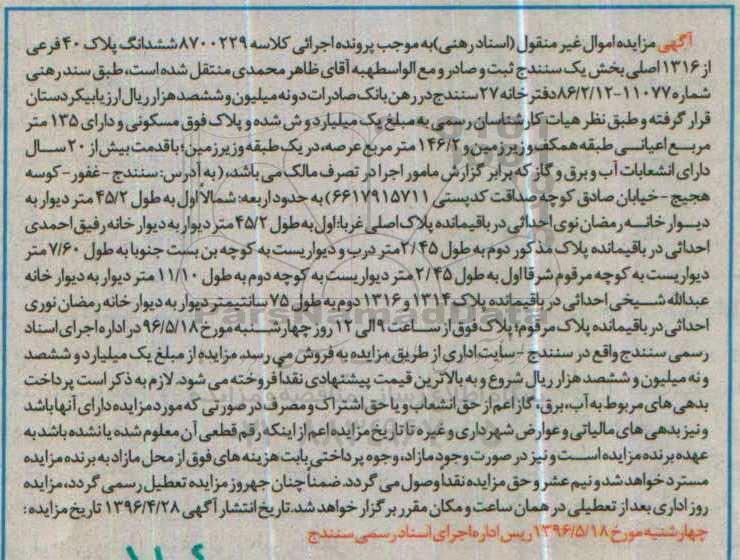 آگهی مزایده اموال غیر منقول (اسناد رهنی) به موجب پرونده اجرائی کلاسه ۸۷۰۰۲۲۹ ششدانگ پلاک ۴۰ فرعی
از ۱۳۱۶ اصلی بخش یک سنندج ثبت و صادر و مع الواسطه به آقای ظاهر محمدی منتقل شده است، طبق سند رهنی
شماره ۱۱۰۷۷-۸۶/۲/۱۲ دفترخانه ۲۷ سنندج در رهن بانک صادرات
قرار گرفته و طبق نظر هیات کارشناسان رسمی به مبلغ یک میلیارد و ش شده و پلاک فوق مسکونی و دارای ۱۳۵ متر
مربع اعیانی طبقه همکف و زیرزمین و ۱۴۶/۲ متر مربع عرصه، در یک طبقه و زیرزمین؛ با قدمت بیش از ۲۰ سال
دارای انشعابات آب و برق و گاز که برابر گزارش مامور اجرا در تصرف مالک می باشد، (به آدرس: سنندج - غفور - کوسه
هجیج - خیابان صادق کوچه صداقت کدپستی ۶۶۱۷۹۱۵۷۱۱) به حدود اربعه: شمالاً اول به طول ۴۵/۲ متر دیوار به
دیوار خانه رمضان نوی احداثی در باقیمانده پلاک اصلی غربا: اول به طول ۴۵/۲ متر دیوار به دیوار خانه رفیق احمدی
احداثی در باقیمانده پلاک مذکور دوم به طول ۲/۴۵ متر درب و دیواریست به کوچه بن بست جنوبا به طول ۷/۶۰ متر
دیواریست به کوچه مرقوم شرقا اول به طول ۲/۴۵ متر دیواریست به کوچه دوم به طول ۱۱/۱۰ متر دیوار به دیوار خانه
عبدالله شیخی احداثی در باقیمانده پلاک ۱۳۱۴ و ۱۳۱۶ دوم به طول ۷۵ سانتیمتر دیوار به دیوار خانه رمضان نوری
احداثی در باقیمانده پلاک مرقوم؛ پلاک فوق از ساعت ۹ الی ۱۲ روز چهارشنبه مورخ ۹۶/۵/۱۸ در اداره اجرای اسناد
رسمی سنندج واقع در سنندج - سایت اداری از طریق مزایده به فروش می رسد. مزایده از مبلغ یک میلیارد و ششصد
و نه میلیون و ششصد هزار ریال شروع و به بالاترین قیمت پیشنهادی نقداً فروخته می شود. لازم به ذکر است پرداخت
بدهی های مربوط به آب، برق، گاز اعم از حق انشعاب و یا حق اشتراک و مصرف در صورتی که مورد مزایده دارای آنها باشد
و نیز بدهی های مالیاتی و عوارض شهرداری و غیره تا تاریخ مزایده اعم از اینکه رقم قطعی آن معلوم شده یا نشده باشد به
عهده برنده مزایده است و نیز در صورت وجود مازاد، وجوه پرداختی بابت هزینه های فوق از محل مازاد به برنده مزایده
مسترد خواهد شد و نیم عشر و حق مزایده نقداً وصول می گردد. ضمناً چنانچه روز مزایده تعطیل رسمی گردد، مزایده
روز اداری بعد از تعطیلی در همان ساعت و مکان مقرر برگزار خواهد شد. تاریخ انتشار آگهی ۱۳۹۶/۴/۲۸ تاریخ مزایده:
چهارشنبه مورخ ۱۳۹۶/۵/۱۸ رییس اداره اجرای اسناد رسمی سنندج
ParsNamadData